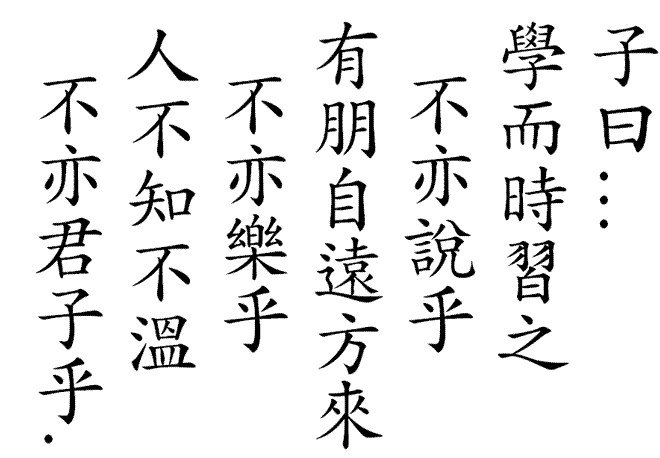 子曰…
學而時習之
不亦說乎
有朋自遠方來
不亦樂乎
人不知不溫
不亦君子乎.